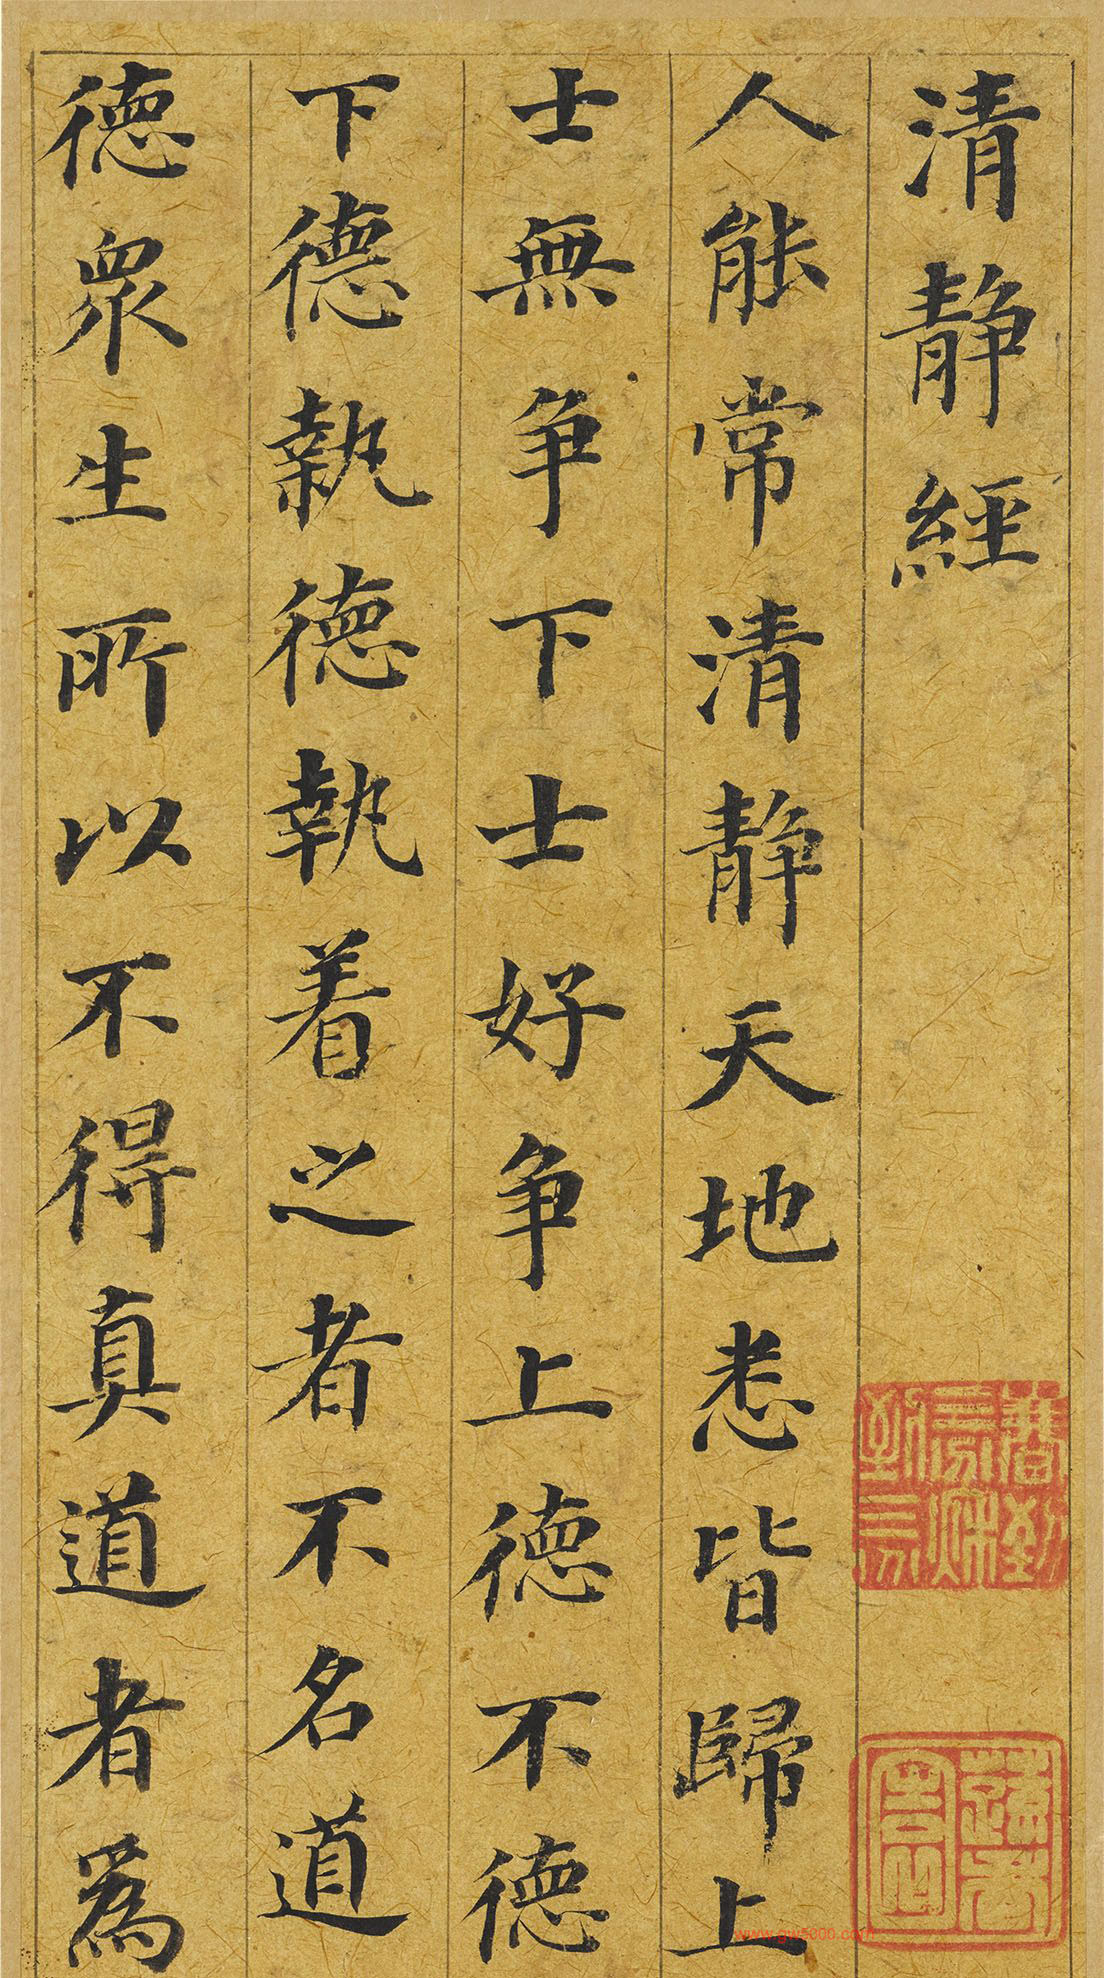 清静經
人能常清静天地悉皆歸上
士無争下士好争上德不德
下德執德執着之者不名道
德衆生所以不得真道者為
www.gw5000.com